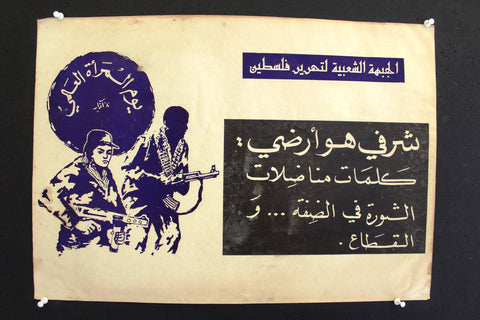 الجبهة الشعبية لتحرير فلسطين
يوم المرأة العالمي
٨ آذار
شرفي هو أرضي :
كلمات مناضلات
الثورة في الضفة ... و
القطاع .